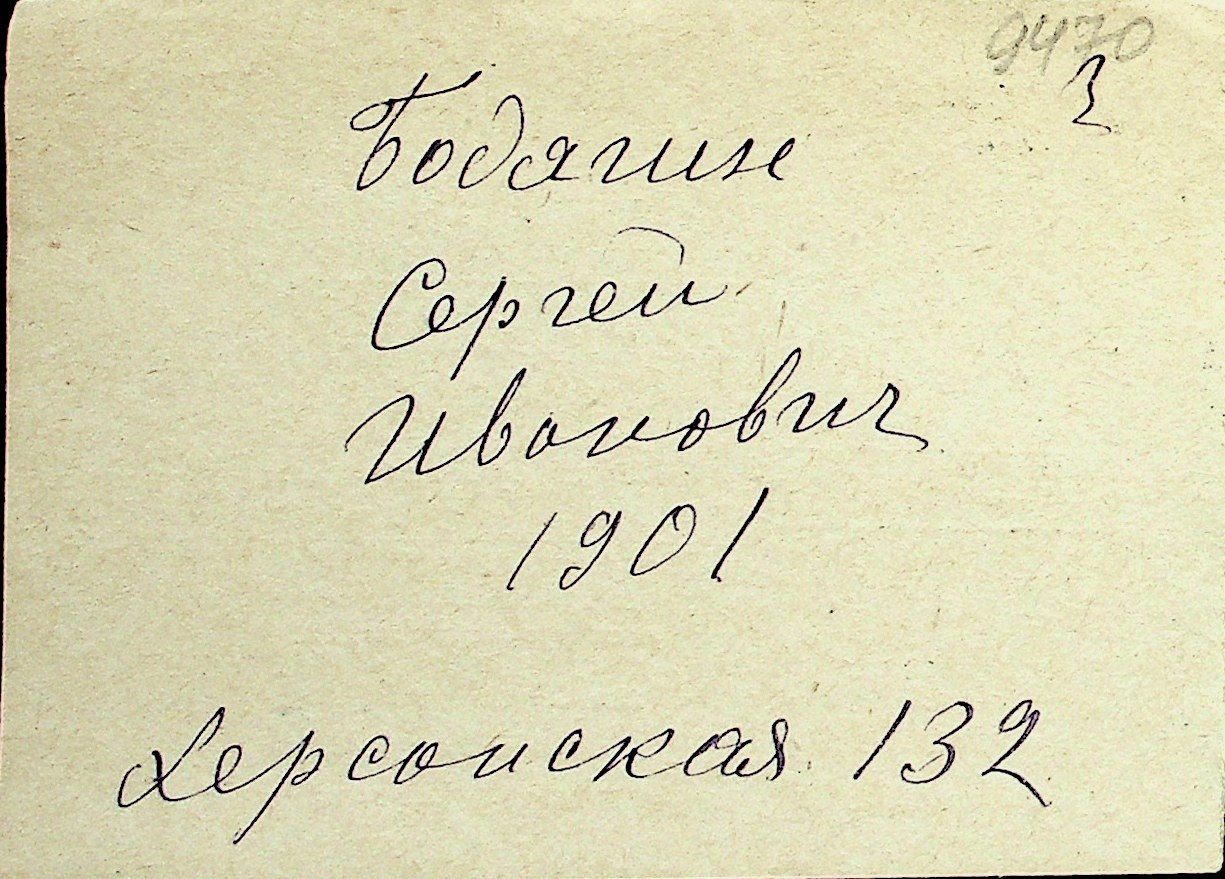 9470
Бодягин
Сергей
Иванович
1901
Херсонская 132